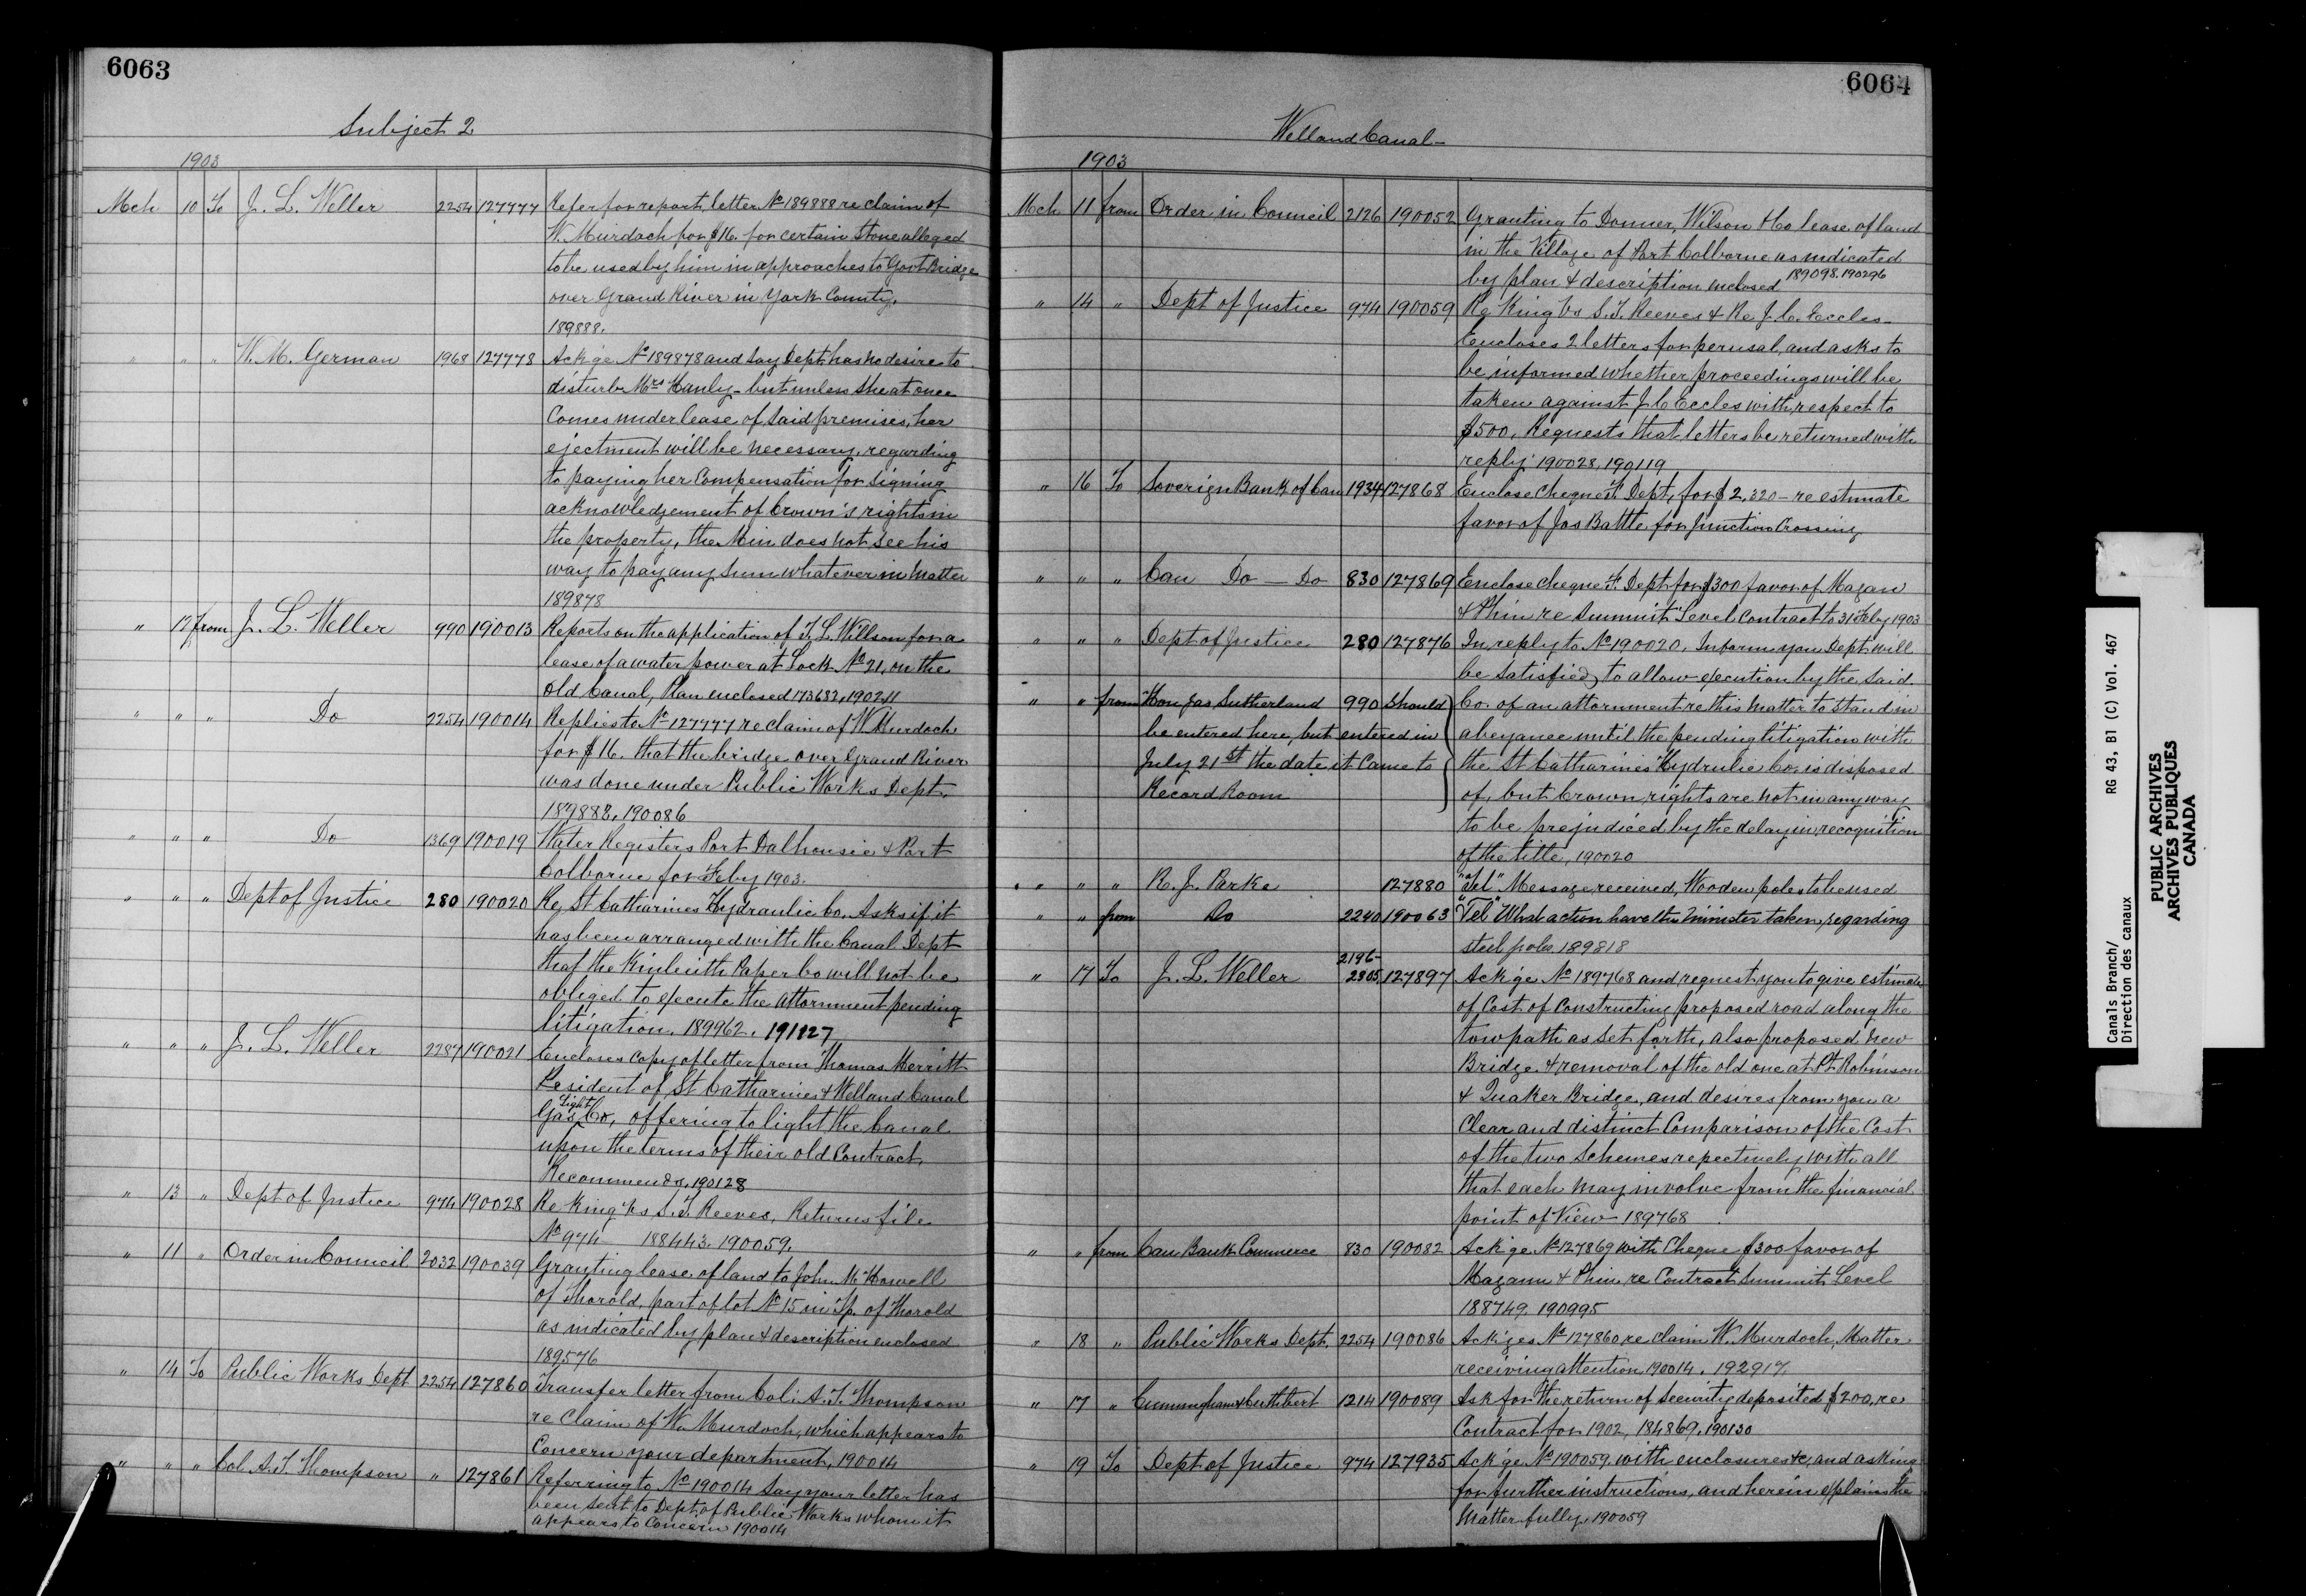 6063
Subject 2
1903
Mch 10 To J. L. Weller 2254 127777 Refer for report, letter No 189888 re claim of
W. Murdoch for $16. for certain stone alleged
to be used by him in approaches to Govt Bridge
over Grand River in York County.
189888.
" " " W. M. German 1968 127778 Ack'ge No 189878 and say Dept. has no desire to
disturb Mrs Hanly - but unless she at once
Comes under lease of said premises, her
ejectment will be necessary, regarding
to paying her Compensation for signing
acknowledgement of Crown's rights in
the property, the Min does not see his
way to pay any sum whatever in matter
189878
" 12 from J. L. Weller 990 190013 Reports on the application of T. L. Willson for a
lease of a water power at Lock No 21, on the
old Canal, Plan enclosed 173682, 190211
" " " Do 2254 190014 Replies to No 127777 re claim of W. Murdoch
for $16. that the bridge over Grand River
was done under Public Works Dept.
189888, 190086
" " " Do 1369 190019 Water Registers Port Dalhousie & Port
Colborne for Feby 1903.
" " " Dept of Justice 280 190020 Re St Catharines Hydraulic Co. Asks if it
has been arranged with the Canal Dept
that the Kinleith Paper Co will not be
obliged to execute the attornment pending
litigation. 189962. 191127
" " " J. L. Weller 2287 190021 Encloses Copy of letter from Thomas Merritt
President of St Catharines & Welland Canal
Gas Light Co, offering to light the Canal
upon the terms of their old Contract.
Recommends, 190128
" 13 " Dept of Justice 974 190028 Re King vs S. T. Reeves, Returns file
No 974 188443. 190059.
" 11 " Order in Council 2032 190039 Granting lease of land to John McHowell
of Thorold, part of lot No 15 in Tp. of Thorold
as indicated by plan & description enclosed
189576
" 14 To Public Works Dept 2254 127860 Transfer letter from Col. A. T. Thompson
re Claim of W. Murdoch, which appears to
Concern your department, 190014
" " " Col. A. T. Thompson " 127861 Referring to No 190014 Say your letter has
been sent to Dept. of Public Works whom it
appears to Concern 190014
6064
Welland Canal -
1903
Mch 11 from Order in Council 2126 190052 Granting to Donner, Wilson & Co lease of land
in the Village of Port Colborne as indicated
by plan & description enclosed 189098. 190296
" 14 " Dept of Justice 974 190059 Re King vs S. T. Reeves & Re J. C. Eccles -
Encloses 2 letters for perusal, and asks to
be informed whether proceedings will be
taken against J. C Eccles with respect to
$500, Requests that letters be returned with
reply 190028, 190119
" 16 To Soverign Bank of Can 1934 127868 Enclose Cheque F. Dept, for $2,320 - re estimate
favor of Jas Battle for Junction Crossing
" " " Can Do — Do 830 127869 Enclose Cheque F. Dept. for $300 favor of Magan
& Phin re Summit Level Contract to 31st Feby 1903
" " " Dept of Justice 280 127876 In reply to No 190020, Inform you Dept. will
be satisfied to allow execution by the said
" " from Hon Jas Sutherland 990 Should Co. of an attornment re this matter to stand in
be entered here, but entered in abeyance until the pending litigation with
July 21st the date it Came to the St Catharines Hydrulic Co. is disposed
Record Room of, but Crown rights are not in any way
to be prejudiced by the delay in recognition
of the title, 190020
" " " R. J. Parke 127880 "Tel" Message received, Wooden poles to be used
" " from Do 2240 190063 "Tel" What action have the Minister taken, regarding
steel poles 189818
" 17 To J. L. Weller 2196- 2305, 127897 Ack'ge No 189768 and request you to give estimate
of Cost of Constructing proposed road along the
tow path as set forth, also proposed new
Bridge & removal of the old one at Pt Robinson
& Quaker Bridge, and desires from you a
Clear and distinct Comparison of the Cost
of the two Schemes repectively with all
that each may involve from the financial
point of View - 189768
" " from Can Bank Commerce 830 190082 Ack'ge No 127869 with Cheque $300 favor of
Magann & Phin re Contract Summit Level
188749. 190995
" 18 " Public Works Dept. 2254 190086 Ack'ges No 127860 re claim W. Murdoch, Matter
receiving attention 190014. 192917.
" 17 " Cunningham & Cuthbert 1214 190089 Ask for the return of Security deposited $200, re
Contract for 1902, 184869, 190130
" 19 To Dept of Justice 974 127935 Ack'ge No 190059, with enclosures &c, and asking
for further instructions, and herein explains the
Matter fully. 190059
Canals Branch/ RG 43, B1 (C) Vol. 467
Direction des canaux
PUBLIC ARCHIVES
ARCHIVES PUBLIQUES
CANADA